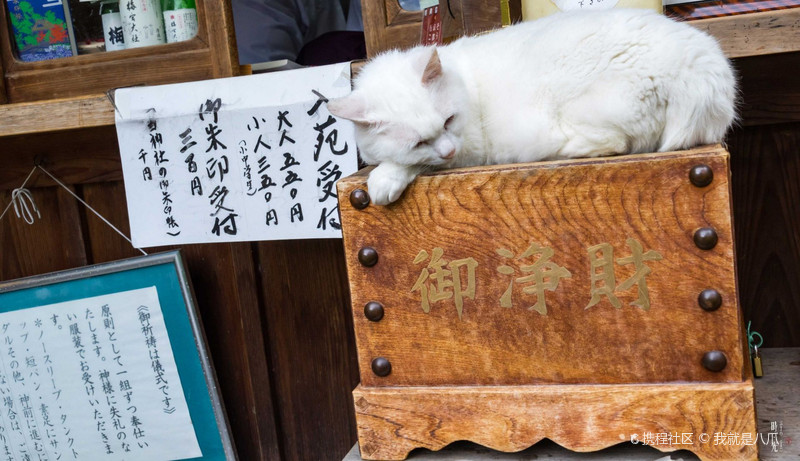 入苑受付
大人 五五〇円
小人 三五〇円
(小中学生)
御朱印受付
三百円
神社の御朱印帳
千円
御浄財
《御祈祷は儀式です》
原則として一組ずつ奉仕い
たします。神様に失礼のな
い服装でお受けいただきま
す。
*ノースリーブ・タンクト
ップ、短パン、素足にサン
ダルその他、神前に進む
ない場合は、ご
梅
梅宮大社
携程社区 © 我就是八爪